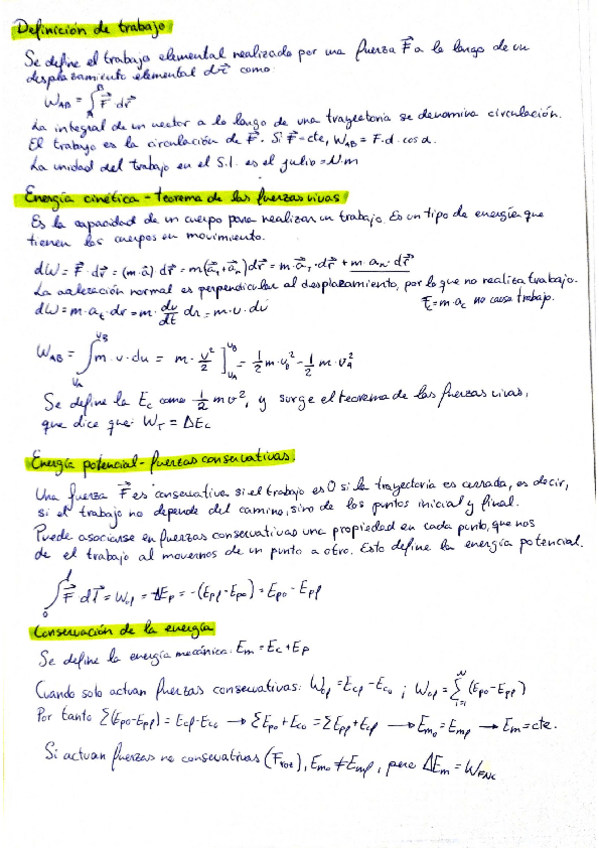 Definición de trabajo
Se define el trabajo elemental realizado por una fuerza F⃗ a lo largo de un
desplazamiento elemental dr⃗ como:
W_AB = ∫_A^B F⃗ dr⃗
La integral de un vector a lo largo de una trayectoria se denomina circulación.
El trabajo es la circulación de F⃗. Si F⃗=cte, W_AB = F·d·cosα.
La unidad del trabajo en el S.I. es el julio = N·m
Energía cinética - teorema de las fuerzas vivas
Es la capacidad de un cuerpo para realizar un trabajo. Es un tipo de energía que
tienen los cuerpos en movimiento.
dW = F⃗·dr⃗ = (m·a⃗)·dr⃗ = m(a⃗_t+a⃗_n)dr⃗ = m·a⃗_t·dr⃗ + m·a⃗_n·dr⃗
La aceleración normal es perpendicular al desplazamiento, por lo que no realiza trabajo.
F_c=m·a_c no causa trabajo.
dW = m·a_t·dr = m·dv/dt dr = m·v·dv
W_AB = ∫_{v_A}^{v_B} m·v·dv = m·v²/2 ]_{v_A}^{v_B} = 1/2 m·v_B² - 1/2 m·v_A²
Se define la E_c como 1/2 m v², y surge el teorema de las fuerzas vivas,
que dice que: W_T = ΔE_c
Energía potencial - fuerzas conservativas.
Una fuerza F⃗ es conservativa si el trabajo es 0 si la trayectoria es cerrada, es decir,
si el trabajo no depende del camino, sino de los puntos inicial y final.
Puede asociarse en fuerzas conservativas una propiedad en cada punto, que nos
de el trabajo al movernos de un punto a otro. Esto define la energía potencial.
∫_0^f F⃗ dr⃗ = W_of = -ΔE_p = -(E_pf-E_po) = E_po - E_pf
Conservación de la energía
Se define la energía mecánica: E_m = E_c + E_p
Cuando solo actuan fuerzas conservativas: W_of = E_cf - E_co ; W_of = Σ_{i=1}^N (E_po - E_pf)
Por tanto Σ(E_po-E_pf) = E_cf-E_co → ΣE_po+E_co = ΣE_pf+E_cf → E_mo = E_mf → E_m = cte.
Si actuan fuerzas no conservativas (F_roz), E_mo ≠ E_mf, pero ΔE_m = W_FNC